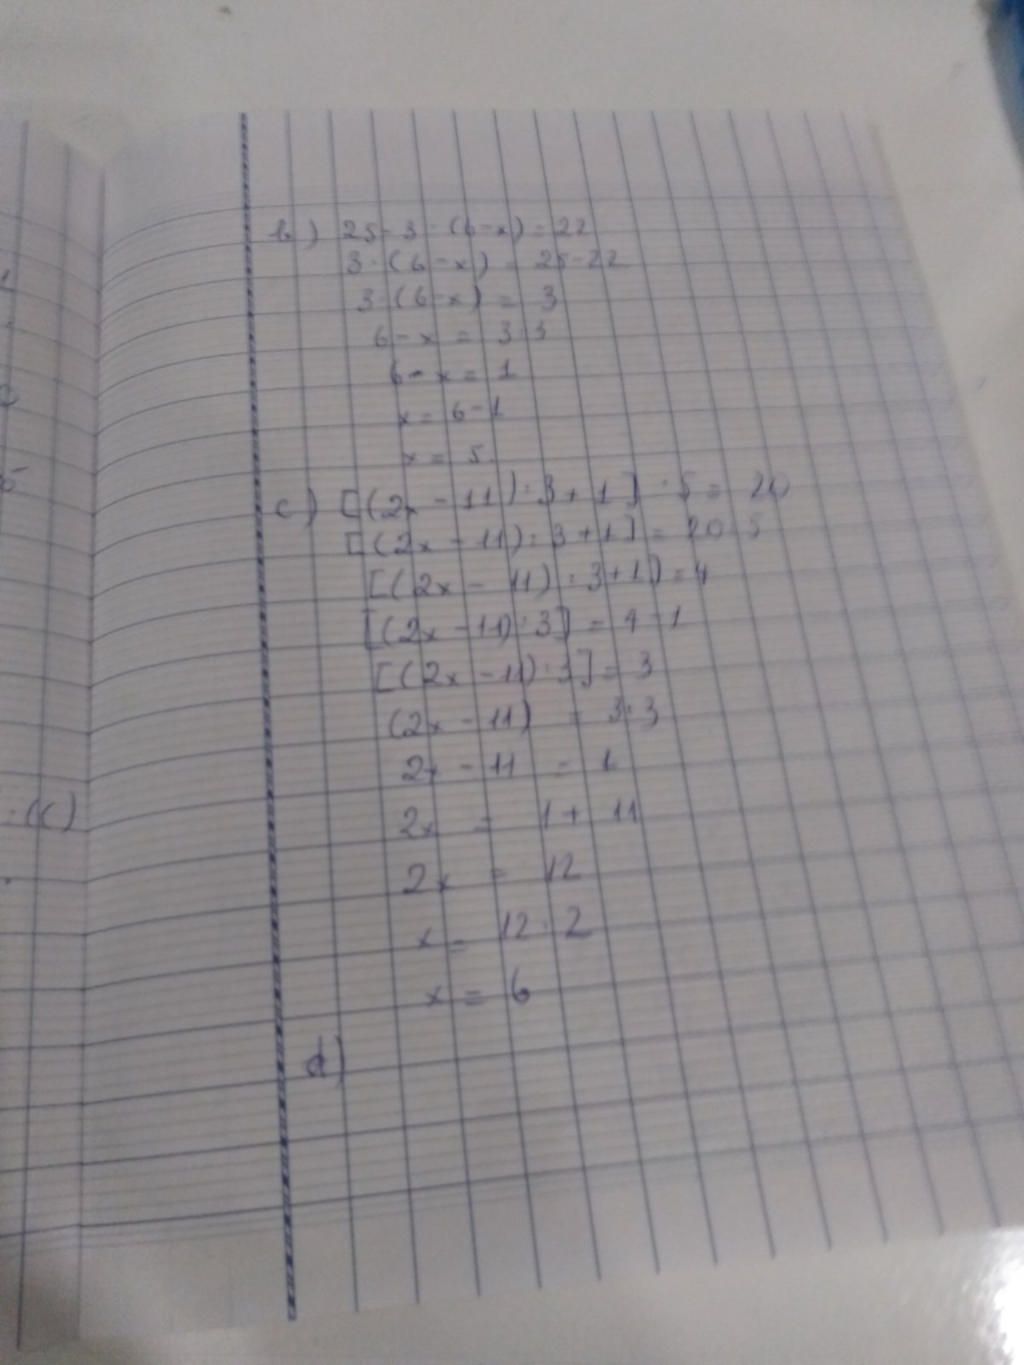 b) 25 - 3 · (6 - x) = 22
3 · (6 - x) = 25 - 22
3 · (6 - x) = 3
6 - x = 3 : 3
6 - x = 1
x = 6 - 1
x = 5
c) [(2x - 11) : 3 + 1] · 5 = 20
[(2x - 11) : 3 + 1] = 20 : 5
[(2x - 11) : 3 + 1] = 4
[(2x - 11) : 3] = 4 - 1
[(2x - 11) : 3] = 3
(2x - 11) = 3 : 3
2x - 11 = 1
2x = 1 + 11
2x = 12
x = 12 : 2
x = 6
d)